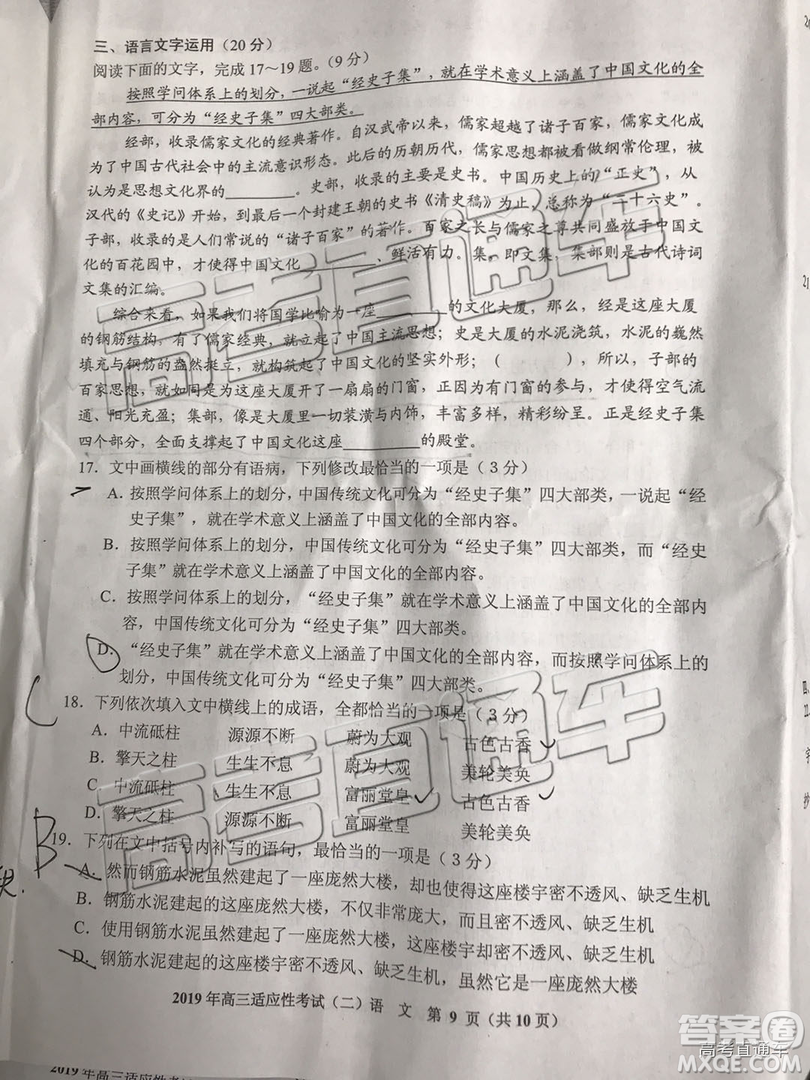 三、语言文字运用（20分）
阅读下面的文字，完成17～19题。（9分）
按照学问体系上的划分，一说起“经史子集”，就在学术意义上涵盖了中国文化的全
部内容，可分为“经史子集”四大部类。
经部，收录儒家文化的经典著作。自汉武帝以来，儒家超越了诸子百家，儒家文化成
为了中国古代社会中的主流意识形态。此后的历朝历代，儒家都被看做纲常伦理，被
认为是思想文化界的________。史部，收录的主要是史书。中国历史上的“正史”，从
汉代的《史记》开始，到最后一个封建王朝的史书《清史稿》为止，总称为“二十六史”。
子部，收录的是人们常说的“诸子百家”的著作。百家之长与儒家之尊共同盛放于中国文
化的百花园中，才使得中国文化________、鲜活有力。集，即文集，集部则是古代诗词
文集的汇编。
综合来看，如果我们将国学比喻为一座________的文化大厦，那么，经是这座大厦
的钢筋结构，有了儒家经典，就立起了中国主流思想；史是大厦的水泥浇筑，水泥的巍然
填充与钢筋的盎然挺立，就搭起了中国文化的坚实外形；（　　　），所以，子部的
百家思想，就如同为这座大厦开了一扇扇的门窗，正因为有门窗的参与，才使得空气流
通、阳光充盈；集部，像是大厦里一切装潢与内饰，丰富多样，精彩纷呈。正是经史子集
四个部分，全面支撑起了中国文化这座________的殿堂。
17．文中画横线的部分有语病，下列修改最恰当的一项是（3分）
A．按照学问体系上的划分，中国传统文化可分为“经史子集”四大部类，一说起“经
史子集”，就在学术意义上涵盖了中国文化的全部内容。
B．按照学问体系上的划分，中国传统文化可分为“经史子集”四大部类，而“经史
子集”就在学术意义上涵盖了中国文化的全部内容。
C．按照学问体系上的划分，“经史子集”就在学术意义上涵盖了中国文化的全部内
容，中国传统文化可分为“经史子集”四大部类。
D．“经史子集”就在学术意义上涵盖了中国文化的全部内容，而按照学问体系上的
划分，中国传统文化可分为“经史子集”四大部类。
C
18．下列依次填入文中横线上的成语，全都恰当的一项是（3分）
A．中流砥柱 源源不断 蔚为大观 古色古香
B．擎天之柱 生生不息 蔚为大观 美轮美奂
C．中流砥柱 生生不息 富丽堂皇 古色古香
D．擎天之柱 源源不断 富丽堂皇 美轮美奂
B
19．下列在文中括号内补写的语句，最恰当的一项是（3分）
A．然而钢筋水泥虽然建起了一座庞然大楼，却也使得这座楼宇密不透风、缺乏生机
B．钢筋水泥建起的这座庞然大楼，不仅非常庞大，而且密不透风、缺乏生机
C．使用钢筋水泥虽然建起了一座庞然大楼，这座楼宇却密不透风、缺乏生机
D．钢筋水泥建起的这座楼宇密不透风、缺乏生机，虽然它是一座庞然大楼
2019年高三适应性考试（二）语 文 第 9 页（共10页）
高考直通车
高考直通车
高考直通车
答案圈
MXQE.COM